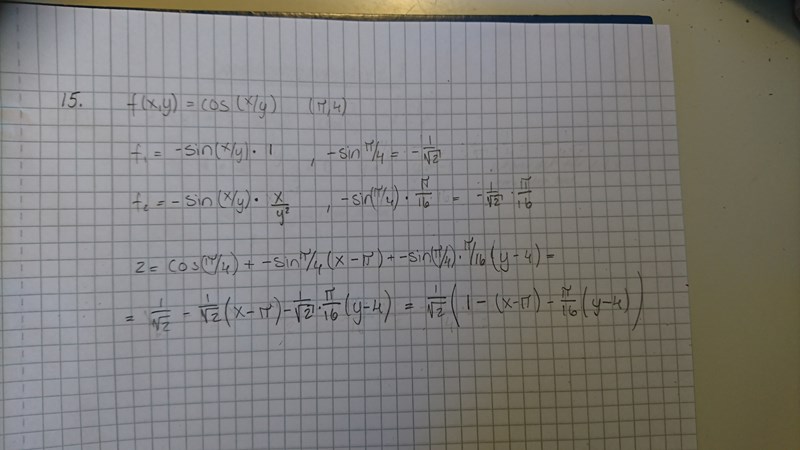 15. f(x,y) = cos(x/y) (π,4)
f₁ = -sin(x/y)· 1 , -sin π/4 = -1/√2
f₂ = -sin(x/y)· x/y² , -sin(π/4)· π/16 = -1/√2 · π/16
z = cos(π/4) + -sin π/4 (x-π) + -sin(π/4)· π/16 (y-4) =
= 1/√2 - 1/√2 (x-π) - 1/√2 · π/16 (y-4) = 1/√2 (1 - (x-π) - π/16 (y-4))